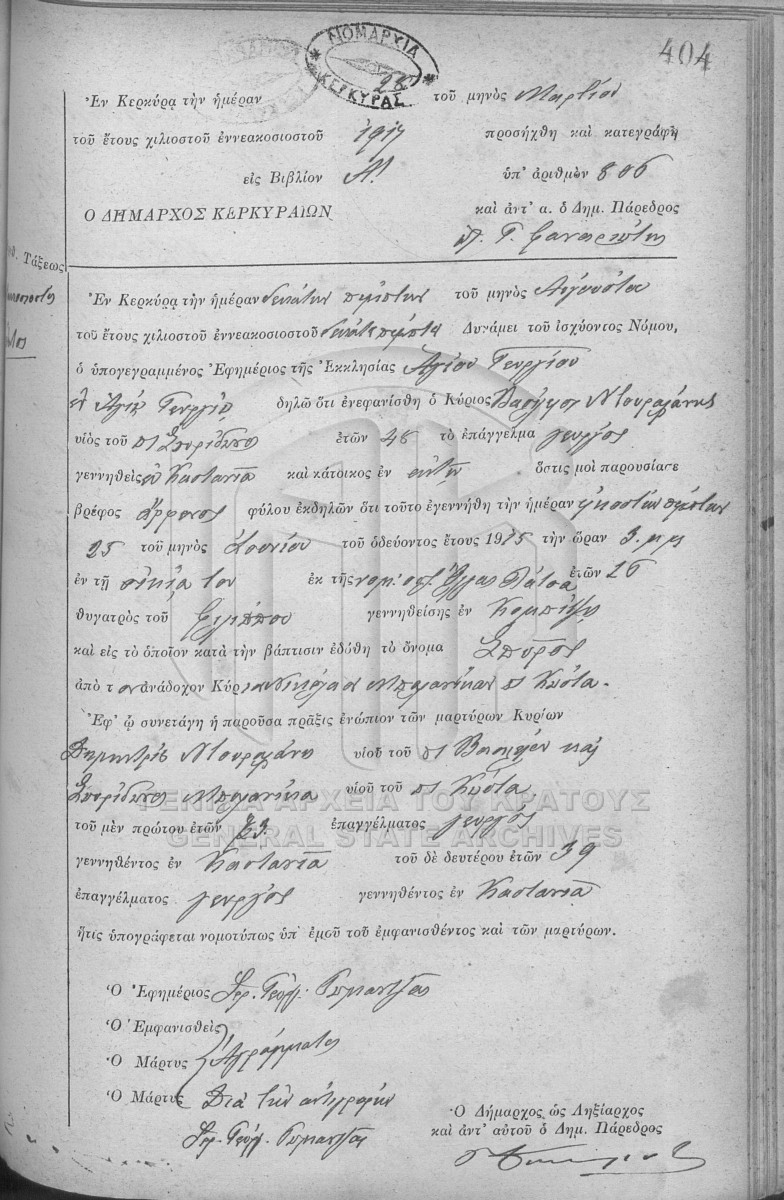 404
ΝΟΜΑΡΧΙΑ
ΚΕΡΚΥΡΑΣ
Ἐν Κερκύρᾳ τὴν ἡμέραν 28 τοῦ μηνὸς Μαρτίου
τοῦ ἔτους χιλιοστοῦ ἐννεακοσιοστοῦ 1917 προσήχθη καὶ κατεγράφη
εἰς Βιβλίον Α! ὑπ' ἀριθμὸν 806
Ο ΔΗΜΑΡΧΟΣ ΚΕΡΚΥΡΑΙΩΝ καὶ ἀντ' α. ὁ Δημ. Πάρεδρος
Τάξεως
Ἐν Κερκύρᾳ τὴν ἡμέραν δεκάτην πέμπτην τοῦ μηνὸς Αὐγούστου
τοῦ ἔτους χιλιοστοῦ ἐννεακοσιοστοῦ δεκάτε πέμπτε Δυνάμει τοῦ ἰσχύοντος Νόμου,
ὁ ὑπογεγραμμένος Ἐφημέριος τῆς Ἐκκλησίας Ἁγίου Γεωργίου
δηλῶ ὅτι ἐνεφανίσθη ὁ Κύριος Βασίλειος
υἱὸς τοῦ Σπυρίδωνος ἐτῶν 48 τὸ ἐπάγγελμα γεωργὸς
γεννηθεὶς Καστανιᾶ καὶ κάτοικος ἐν αὐτῇ ὅστις μοὶ παρουσίασε
βρέφος ἄρρενος φύλου ἐκδηλῶν ὅτι τοῦτο ἐγεννήθη τὴν ἡμέραν εἰκοστὴν πέμπτην
25 τοῦ μηνὸς Ἰουνίου τοῦ ὁδεύοντος ἔτους 1915 τὴν ὥραν 3. μ μ
ἐν τῇ οἰκίᾳ του ἐκ τῆς ἐτῶν 26
θυγατρὸς τοῦ Φιλίππου γεννηθείσης ἐν
καὶ εἰς τὸ ὁποῖον κατὰ τὴν βάπτισιν ἐδόθη τὸ ὄνομα Σπῦρος
ἀπὸ τ ον ἀνάδοχον Κύριον Νικόλαον Κώστα.
Ἐφ' ᾧ συνετάγη ἡ παροῦσα πρᾶξις ἐνώπιον τῶν μαρτύρων Κυρίων
υἱοῦ τοῦ Βασιλείου καὶ
Σπυρίδωνος υἱοῦ τοῦ Κώστα
ΓΕΝΙΚΑ ΑΡΧΕΙΑ ΤΟΥ ΚΡΑΤΟΥΣ
τοῦ μὲν πρώτου ἐτῶν 73 ἐπαγγέλματος γεωργὸς
GENERAL STATE ARCHIVES
γεννηθέντος ἐν Καστανιᾶ τοῦ δὲ δευτέρου ἐτῶν 39
ἐπαγγέλματος γεωργὸς γεννηθέντος ἐν Καστανιᾶ
ἥτις ὑπογράφεται νομοτύπως ὑπ' ἐμοῦ τοῦ ἐμφανισθέντος καὶ τῶν μαρτύρων.
Ὁ Ἐφημέριος
Ὁ Ἐμφανισθεὶς
Ὁ Μάρτυς Ἀγράμματος
Ὁ Μάρτυς Διὰ τὴν ἀντιγραφὴν
Ὁ Δήμαρχος ὡς Ληξίαρχος
καὶ ἀντ' αὐτοῦ ὁ Δημ. Πάρεδρος